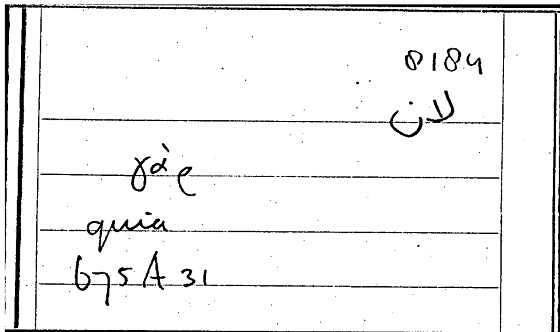 8184
لان
γὰρ
quia
675 A 31